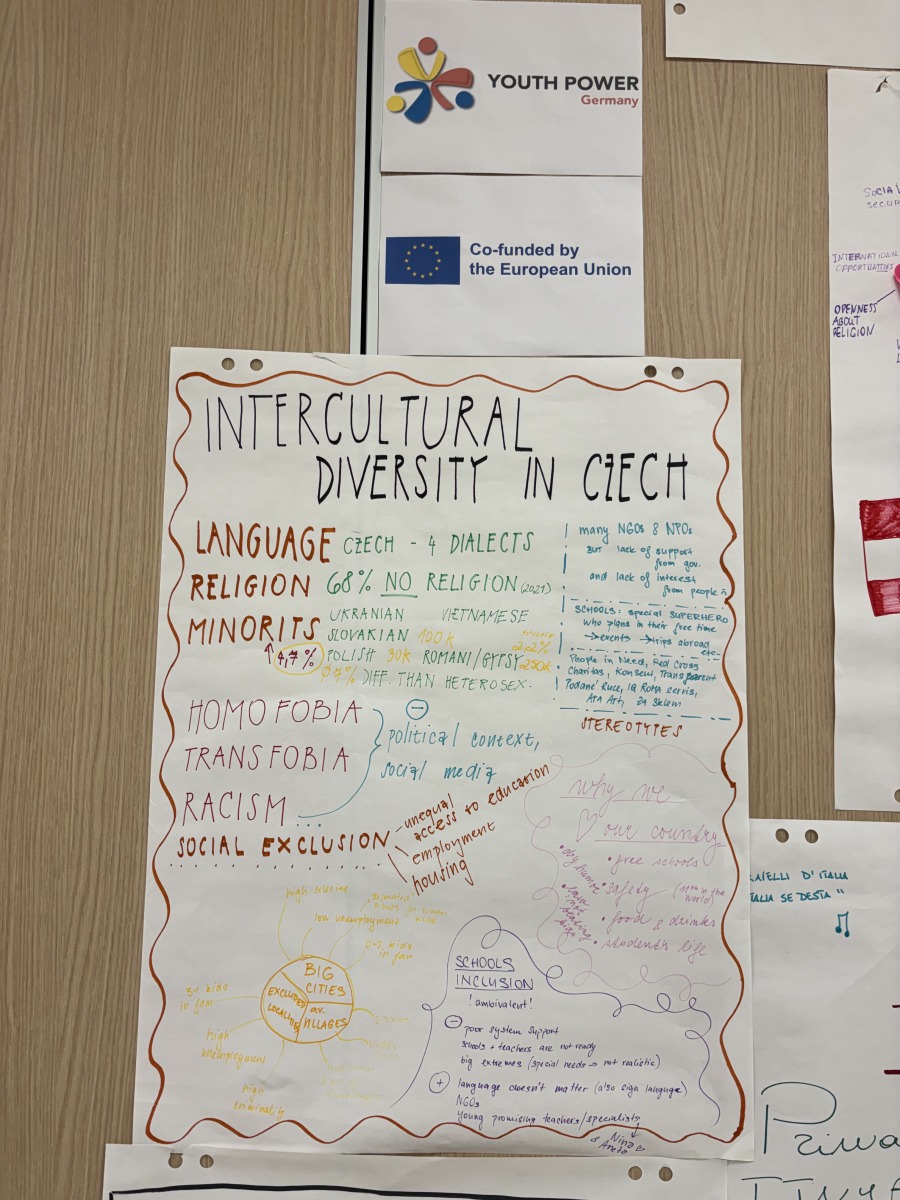 YOUTH POWER
Germany
Co-funded by
the European Union
INTERCULTURAL
DIVERSITY IN CZECH
LANGUAGE CZECH - 4 DIALECTS
RELIGION 68% NO RELIGION (2021)
MINORITS UKRANIAN VIETNAMESE
SLOVAKIAN 100k
4,7% POLISH 30k ROMANI/GYPSY 250k
DIFF. THAN HETEROSEX.
many NGOs & NPOs
BUT lack of support
from gov.
and lack of interest
from people
SCHOOLS: special SUPERHERO
who plans in their free time
→ events → trips abroad
etc.
People in Need, Red Cross
Charitas, Konsent, Transparent
Podané Ruce, IQ Roma servis,
Ara Art,
STEREOTYPES
HOMOFOBIA
TRANSFOBIA
RACISM...
political context,
social media
SOCIAL EXCLUSION
unequal
access to education
employment
housing
why we
♡ our country
• free schools
• safety
• food & drinks
• student's life
high salaries
low unemployment
0-2 kids
in fam
BIG
CITIES
EXCLUDED
LOCALITIES
av.
VILLAGES
3+ kids
in fam
high
unemployment
high
criminality
SCHOOLS
INCLUSION
! ambivalent!
- poor system support
schools + teachers are not ready
big extremes (special needs → not realistic)
+ language doesn't matter (also sign language)
NGOs
young promising teachers/specialists
Nina
& Aneta
SOCIAL
INTERNATIONAL
OPPORTUNITIES
OPENNESS
ABOUT
RELIGION
D'ITALIA
SE DESTA"